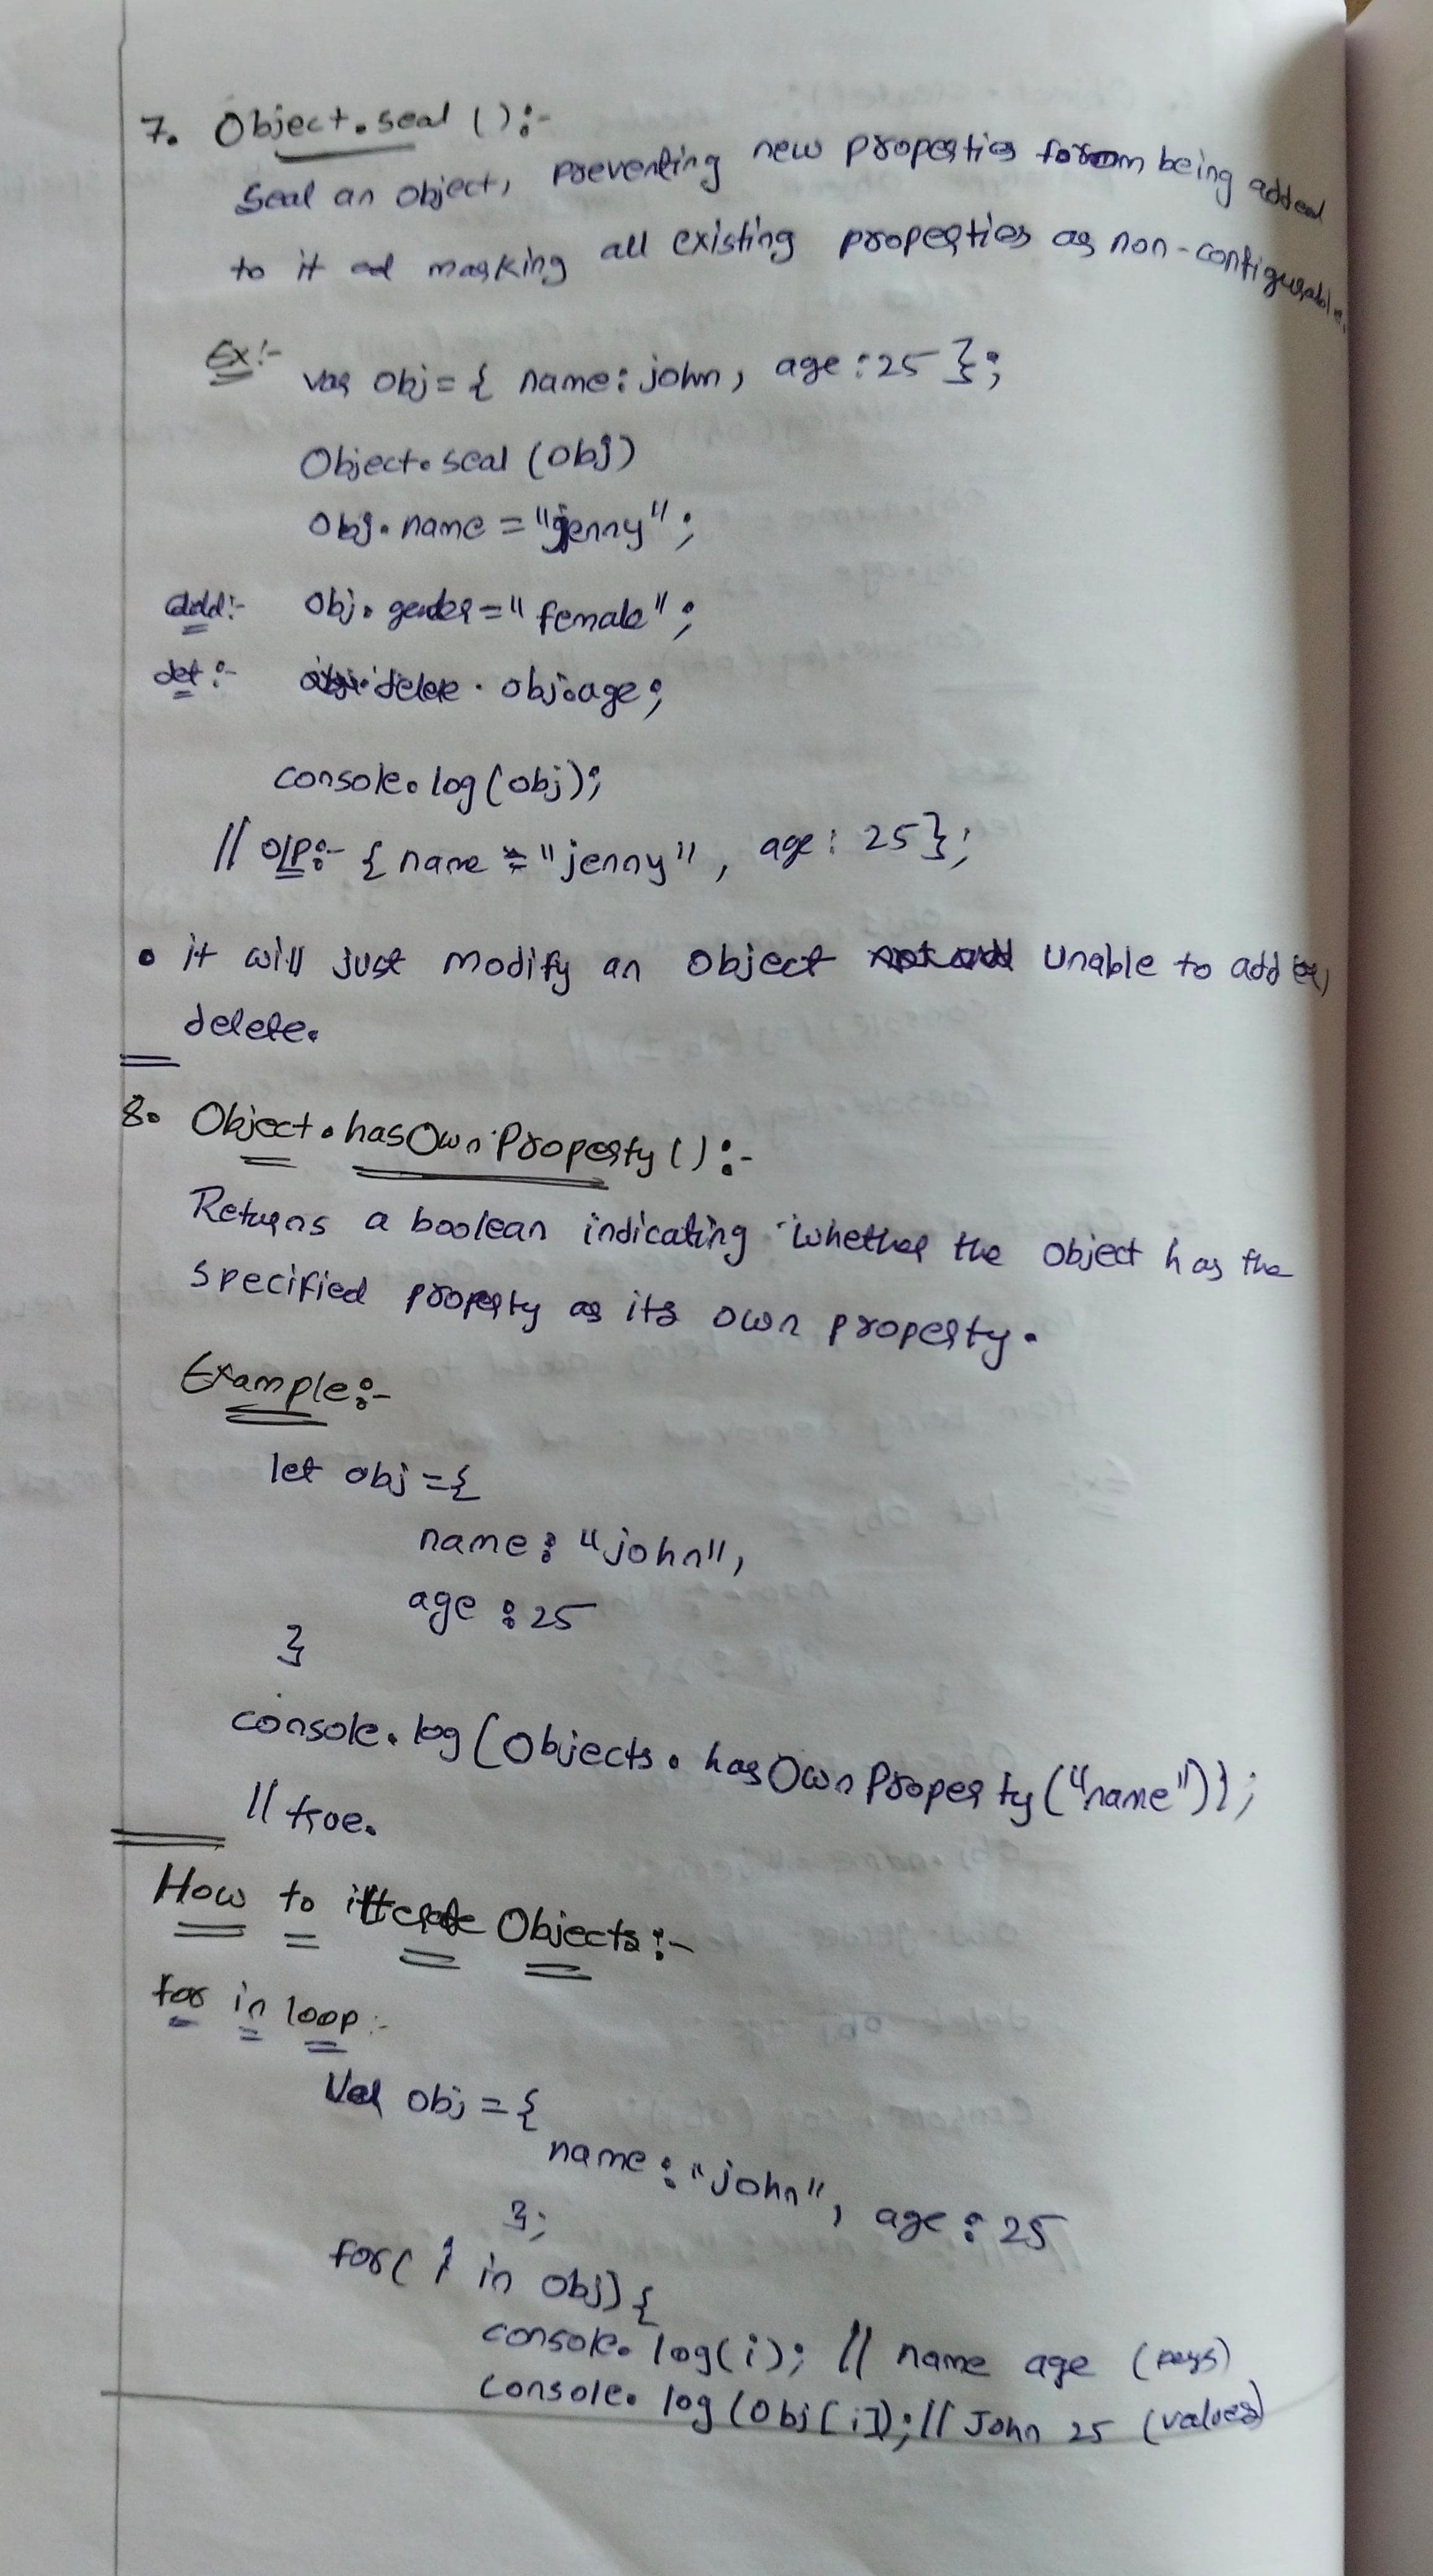 7. Object.seal ():-
Seal an object, preventing new properties from being added
to it ad marking all existing properties as non-configurable.
Ex:- var obj = { name: john, age : 25 };
Object.seal (obj)
obj.name = "jenny";
add:- obj.gender = "female";
del:- delete . obj.age;
console.log(obj);
// O/P:- { name = "jenny", age : 25 };
• it will just modify an object unable to add (or)
delete.
8. Object.hasOwnProperty():-
Returns a boolean indicating whether the object has the
specified property as its own property.
Example:-
let obj = {
name : "john",
age : 25
}
console.log(Objects.hasOwnProperty("name"));
// true.
How to itterate Objects:-
for in loop:-
Var obj = {
name : "john", age : 25
};
for( i in obj) {
console.log(i); // name age (keys)
console.log(obj[i]); // John 25 (values)